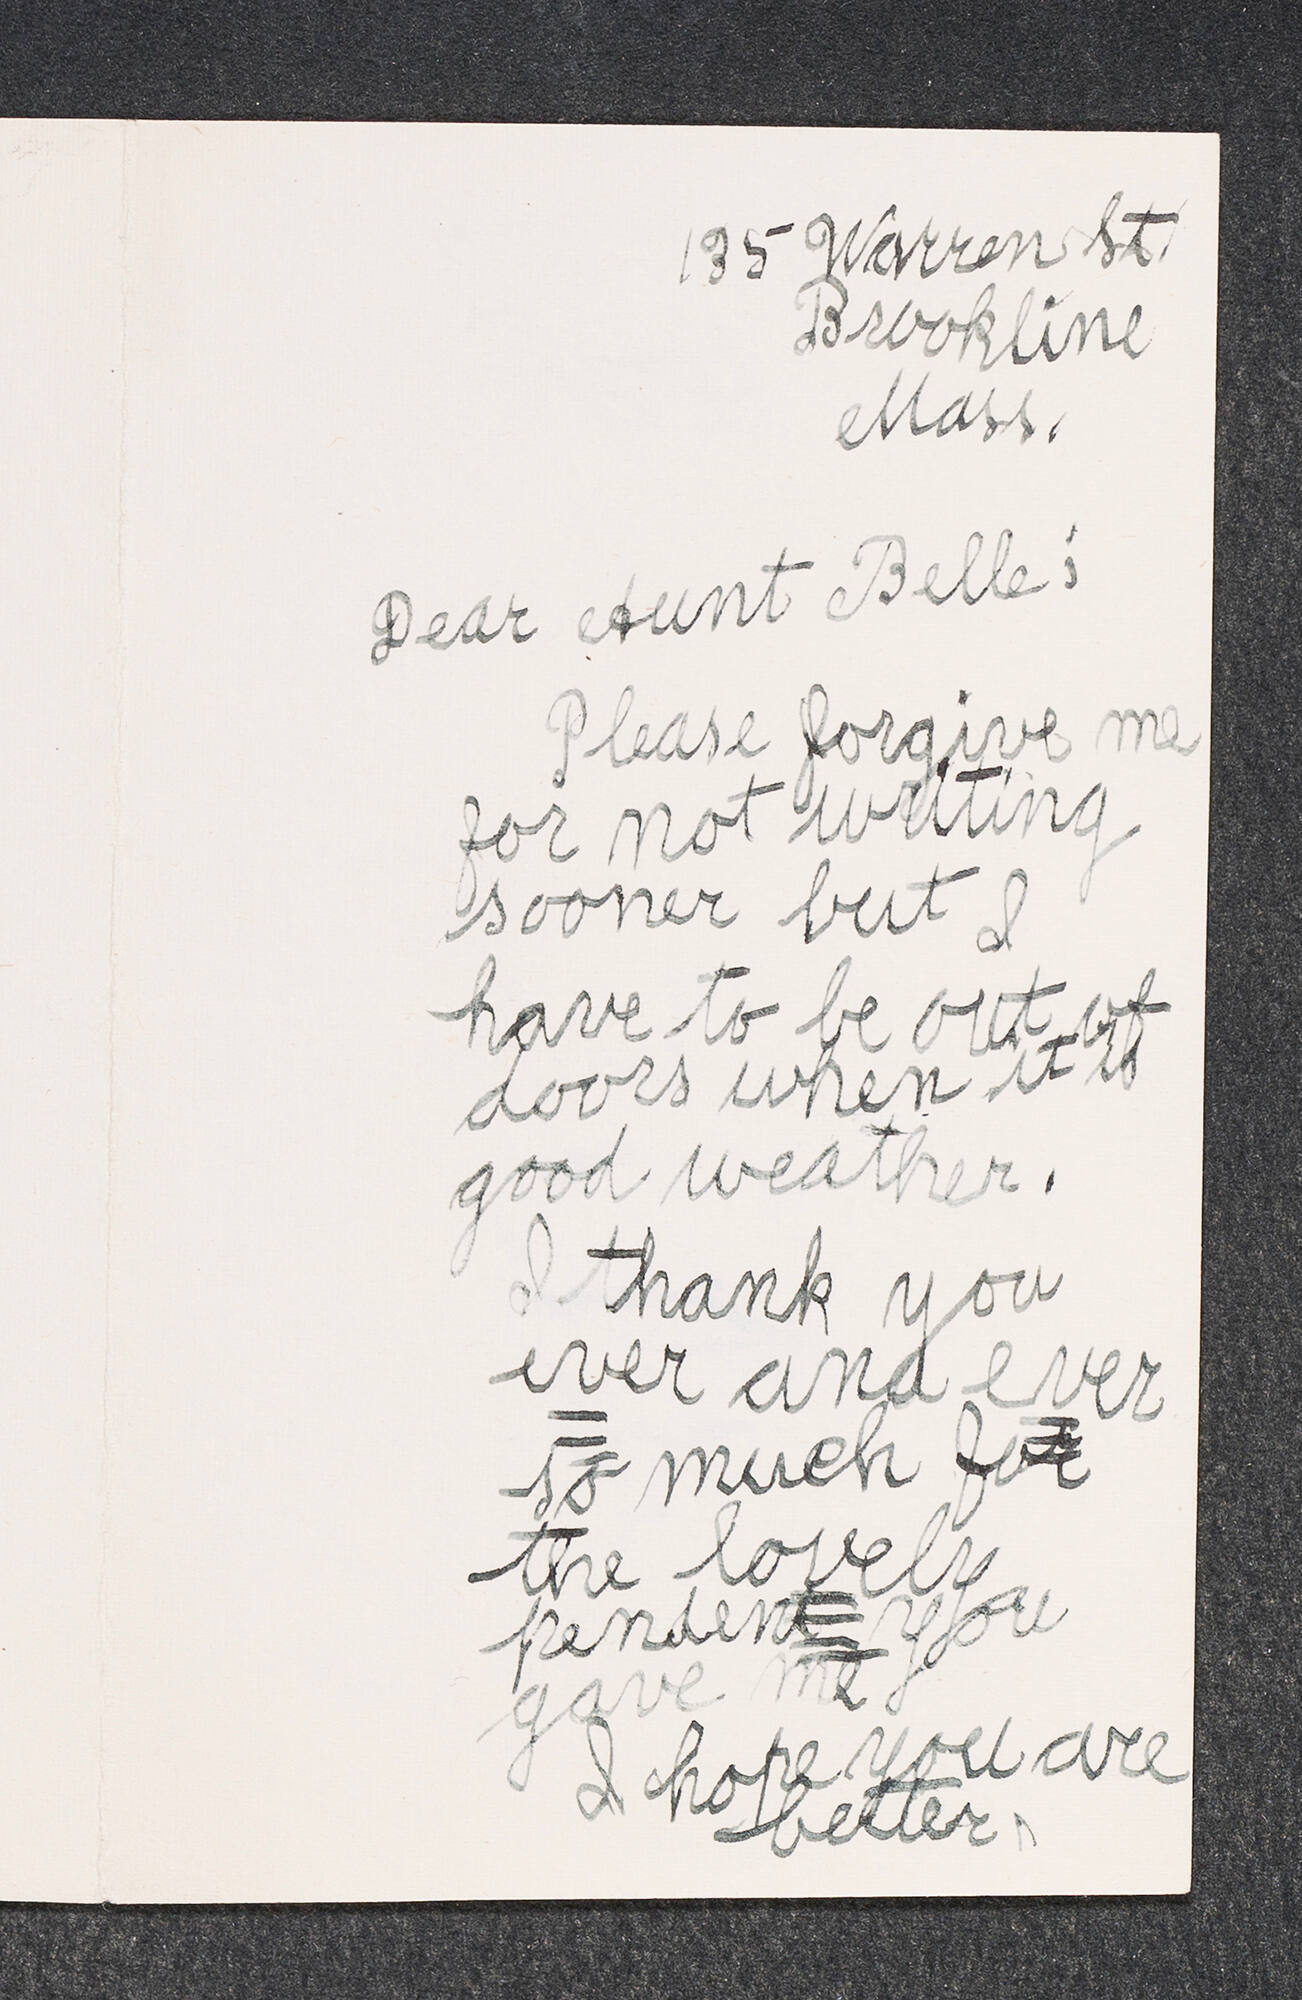 135 Warren St.
Brookline
Mass.
Dear Aunt Belle:
Please forgive me
for not writing
sooner but I
have to be out of
doors when it is
good weather.
I thank you
ever and ever
so much for
the lovely
pendent you
gave me
I hope you are
better.